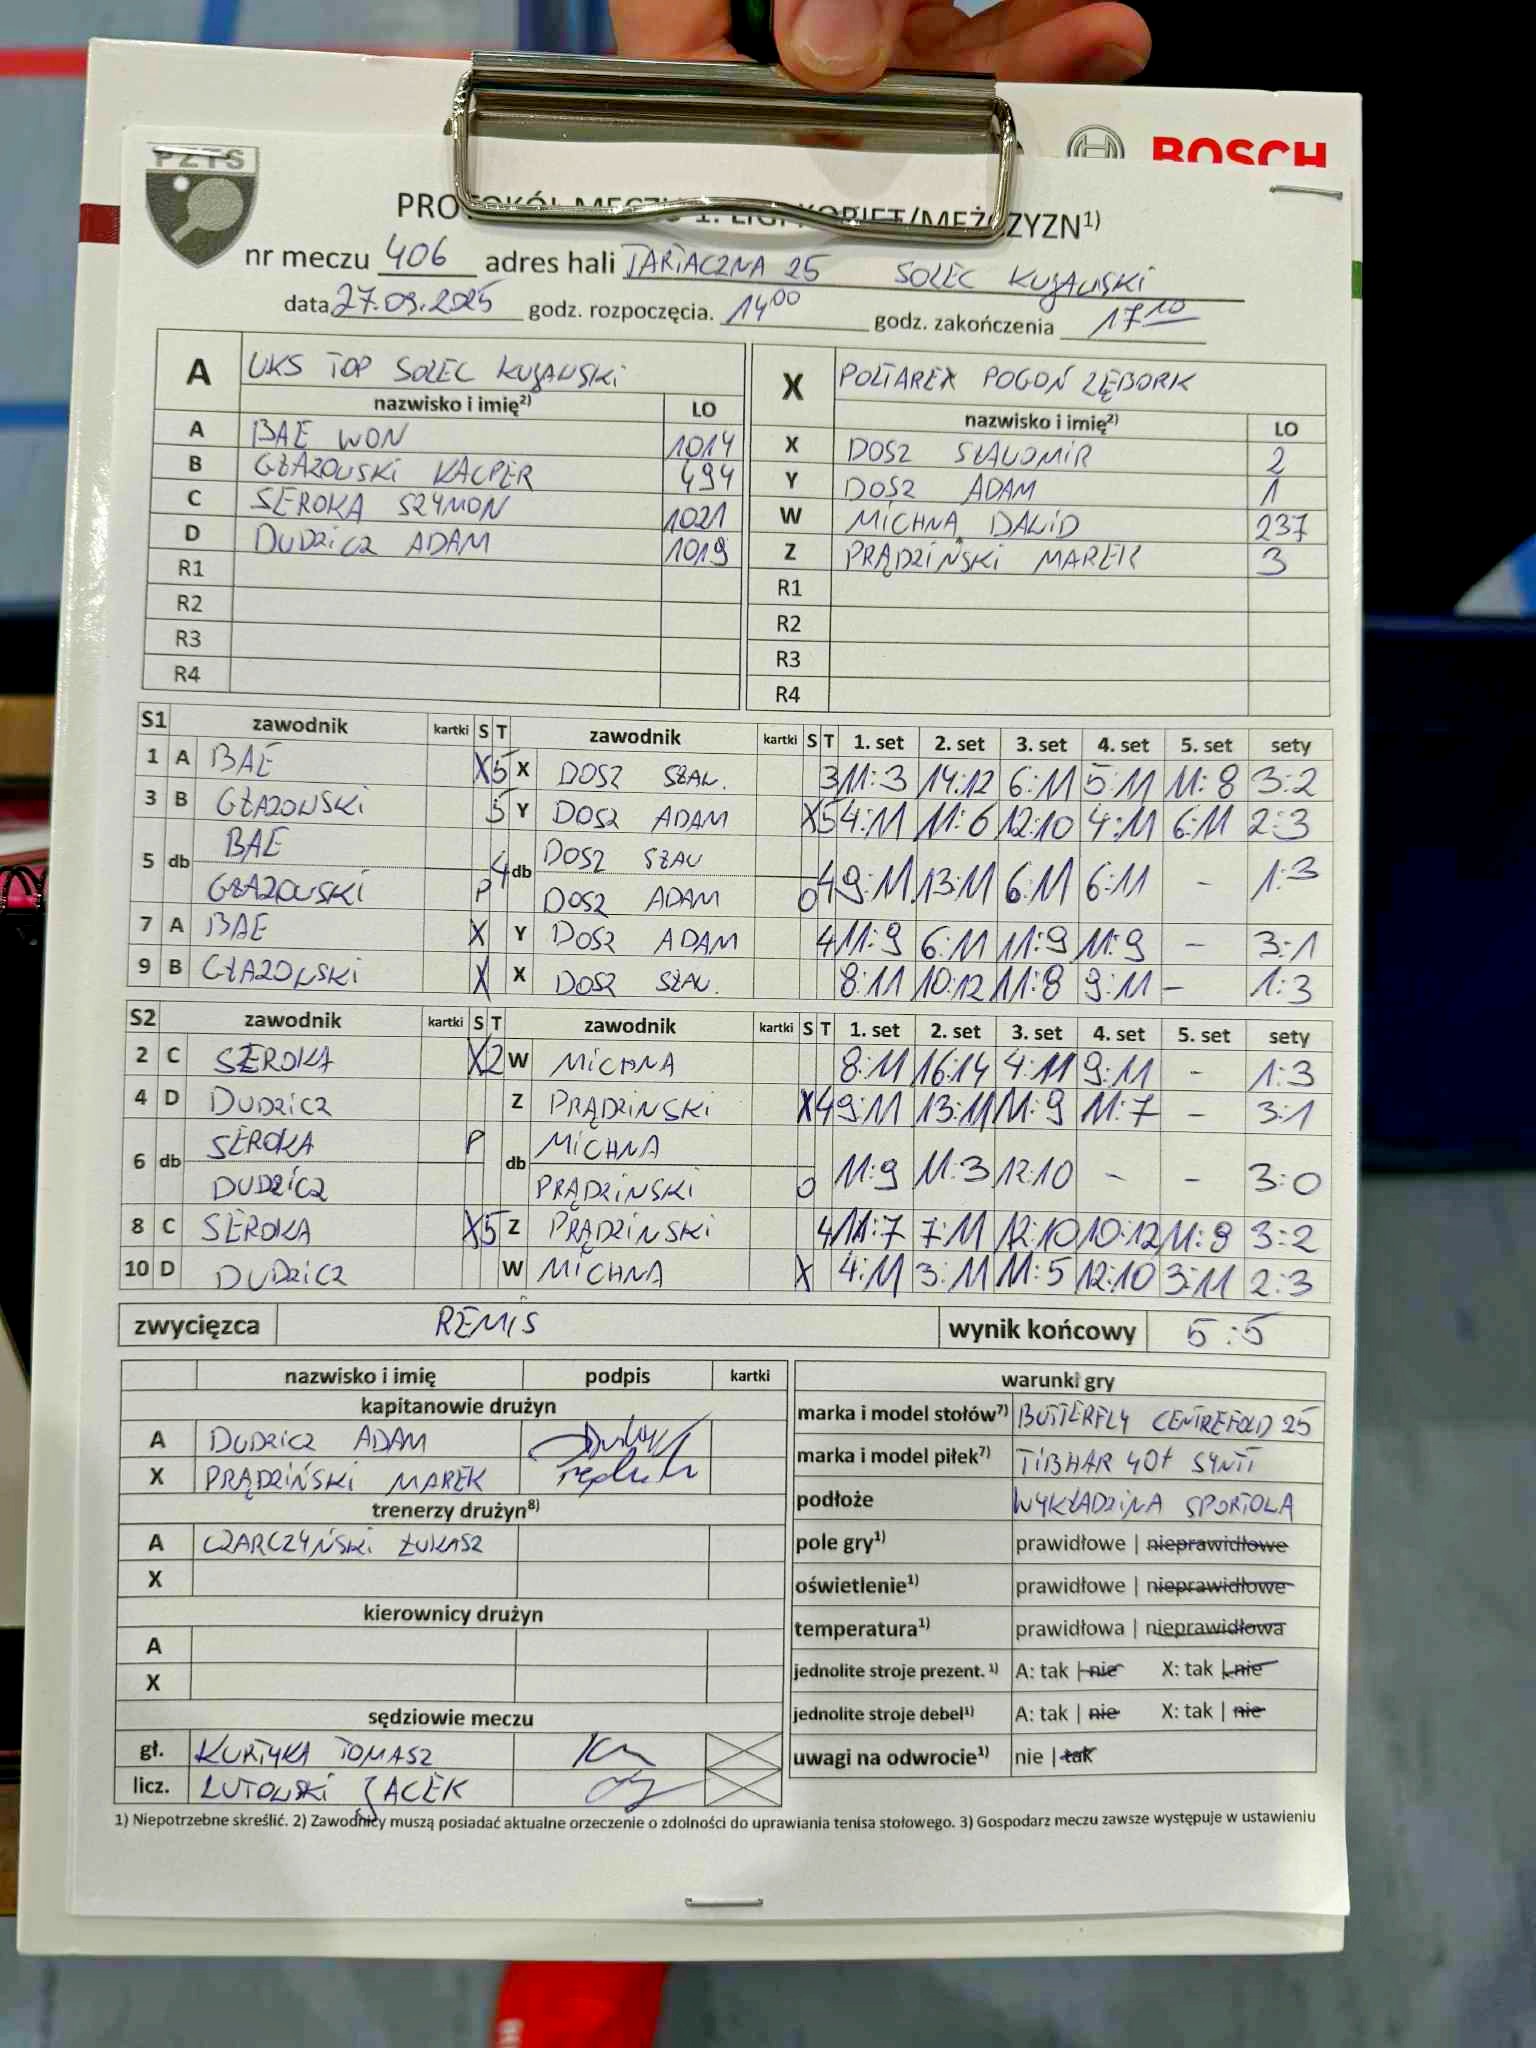 BOSCH
PZTS
PROTOKÓŁ MECZU 1. LIGI KOBIET/MĘŻCZYZN1)
nr meczu 406 adres hali TARTACZNA 25 SOLEC KUJAWSKI
data 27.09.2025 godz. rozpoczęcia. 14 00 godz. zakończenia 17 10
A UKS TOP SOLEC KUJAWSKI X POLTAREX POGOŃ LĘBORK
nazwisko i imię2) LO nazwisko i imię2) LO
A BAE WON 1014 X DOSZ SŁAWOMIR 2
B GŁAZOWSKI KACPER 494 Y DOSZ ADAM 1
C SEROKA SZYMON 1021 W MICHNA DAWID 237
D DUDZICZ ADAM 1019 Z PRĄDZIŃSKI MAREK 3
R1 R1
R2 R2
R3 R3
R4 R4
S1 zawodnik kartki S T zawodnik kartki S T 1. set 2. set 3. set 4. set 5. set sety
1 A BAE X 5 X DOSZ SŁAW. 3 11:3 14:12 6:11 5:11 11:8 3:2
3 B GŁAZOWSKI 5 Y DOSZ ADAM X 5 4:11 11:6 12:10 4:11 6:11 2:3
5 db BAE 4 db DOSZ SŁAW 4 9:11 13:11 6:11 6:11 - 1:3
GŁAZOWSKI P DOSZ ADAM O
7 A BAE X Y DOSZ ADAM 4 11:9 6:11 11:9 11:9 - 3:1
9 B GŁAZOWSKI X X DOSZ SŁAW. 8:11 10:12 11:8 9:11 - 1:3
S2 zawodnik kartki S T zawodnik kartki S T 1. set 2. set 3. set 4. set 5. set sety
2 C SEROKA X 2 W MICHNA 8:11 16:14 4:11 9:11 - 1:3
4 D DUDZICZ Z PRĄDZIŃSKI X 4 9:11 13:11 11:9 11:7 - 3:1
6 db SEROKA P db MICHNA 11:9 11:3 12:10 - - 3:0
DUDZICZ PRĄDZIŃSKI O
8 C SEROKA X 5 Z PRĄDZIŃSKI 4 11:7 7:11 12:10 10:12 11:9 3:2
10 D DUDZICZ W MICHNA X 4:11 3:11 11:5 12:10 3:11 2:3
zwycięzca REMIS wynik końcowy 5:5
nazwisko i imię podpis kartki warunki gry
kapitanowie drużyn marka i model stołów7) BUTTERFLY CENTREFOLD 25
A DUDZICZ ADAM
X PRĄDZIŃSKI MAREK marka i model piłek7) TIBHAR 40+ SYNTT
trenerzy drużyn8) podłoże WYKŁADZINA SPORTOWA
A CZARCZYŃSKI ŁUKASZ pole gry1) prawidłowe | nieprawidłowe
X oświetlenie1) prawidłowe | nieprawidłowe
kierownicy drużyn temperatura1) prawidłowa | nieprawidłowa
A jednolite stroje prezent.1) A: tak | nie X: tak | nie
X
sędziowie meczu jednolite stroje debel1) A: tak | nie X: tak | nie
gł. KURTYKA TOMASZ uwagi na odwrocie1) nie | tak
licz. LUTOWSKI JACEK
1) Niepotrzebne skreślić. 2) Zawodnicy muszą posiadać aktualne orzeczenie o zdolności do uprawiania tenisa stołowego. 3) Gospodarz meczu zawsze występuje w ustawieniu